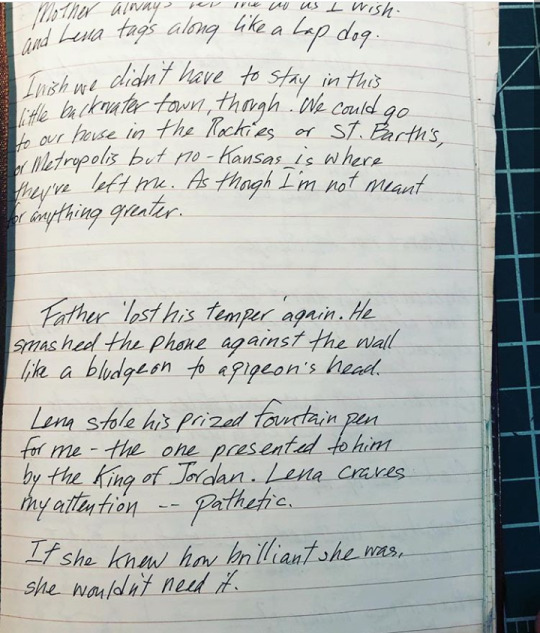 Mother always let me do as I wish.
and Lena tags along like a lap dog.
I wish we didn't have to stay in this
little backwater town, though. We could go
to our house in the Rockies or St. Barth's,
or Metropolis but no - Kansas is where
they've left me. As though I'm not meant
for anything greater.
Father 'lost his temper' again. He
smashed the phone against the wall
like a bludgeon to a pigeon's head.
Lena stole his prized fountain pen
for me - the one presented to him
by the King of Jordan. Lena craves
my attention -- pathetic.
If she knew how brilliant she was,
she wouldn't need it.